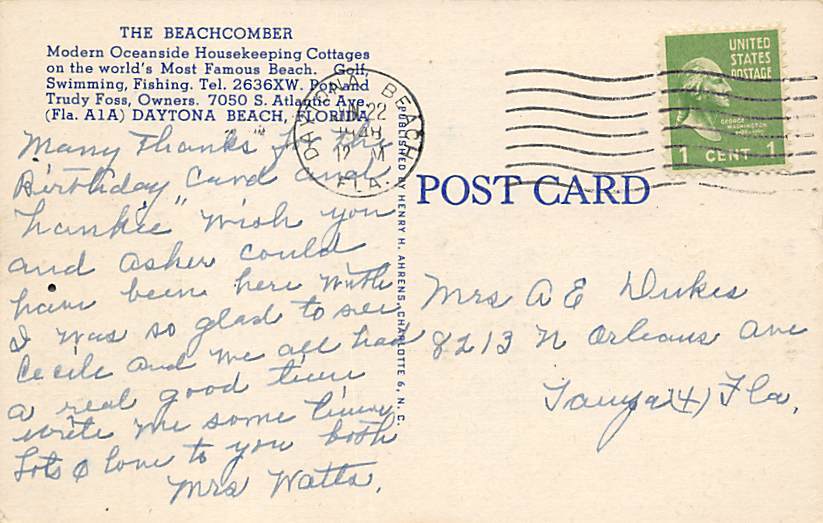 THE BEACHCOMBER
Modern Oceanside Housekeeping Cottages
on the world's Most Famous Beach. Golf,
Swimming, Fishing. Tel. 2636XW. Pop and
Trudy Foss, Owners. 7050 S. Atlantic Ave.
(Fla. A1A) DAYTONA BEACH, FLORIDA
Many Thanks for the
Birthday Card and
"hankie" Wish you
and Asher could
have been here with
I was so glad to see
Cecile and we all had
a real good time
write me some time
Lots of love to you both
Mrs Watts.
DAYTONA BEACH
22
1948
12 M
FLA.
PUBLISHED BY HENRY H. AHRENS, CHARLOTTE 6, N. C.
UNITED
STATES
POSTAGE
GEORGE
WASHINGTON
1 CENT 1
POST CARD
Mrs A E Dukes
8213 N Orleans Ave
Tampa (4) Fla.